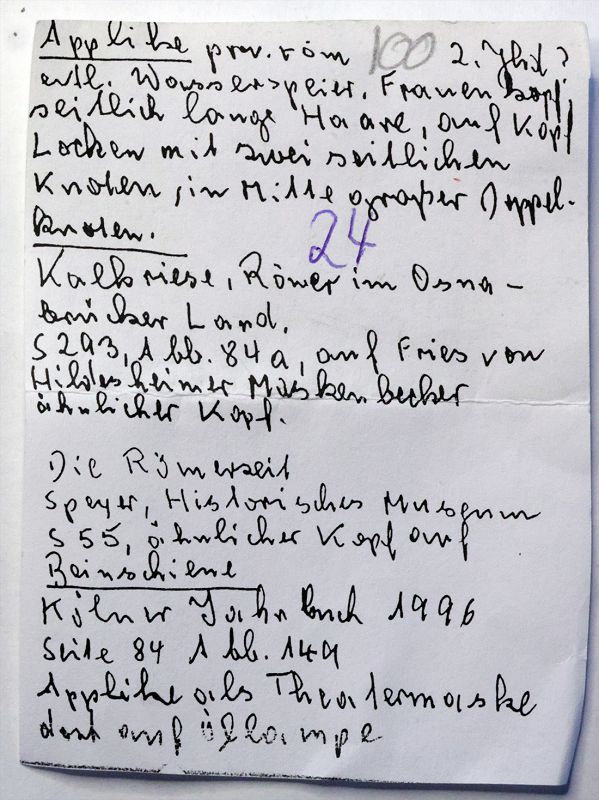 Applike prov. röm 100 2. Jhd?
evtl. Wasserspeier. Frauenkopf,
seitlich lange Haare, auf Kopf
Locken mit zwei seitlichen
Knoten, in Mitte großer Doppel-
knoten.
24
Kalkriese, Römer im Osna-
brücker Land.
S 293, Abb. 84a, auf Fries von
Hildesheimer Maskenbecher
ähnlicher Kopf.
Die Römerzeit
Speyer, Historisches Museum
S 55, ähnlicher Kopf auf
Beinschiene
Kölner Jahrbuch 1996
Seite 84 Abb. 149
Applike als Theatermaske
dort auf Öllampe